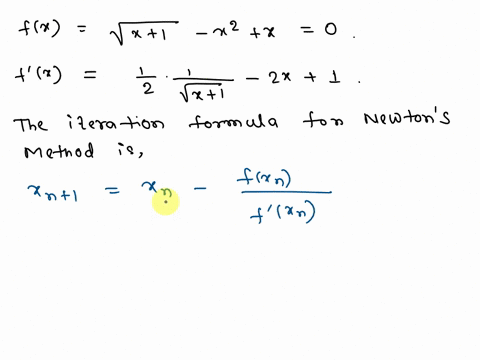 f(x) = √(x+1) - x² + x = 0 .
f'(x) = 1/2 · 1/√(x+1) - 2x + 1 .
The iteration formula for Newton's
Method is,
x_{n+1} = x_n - f(x_n)/f'(x_n)